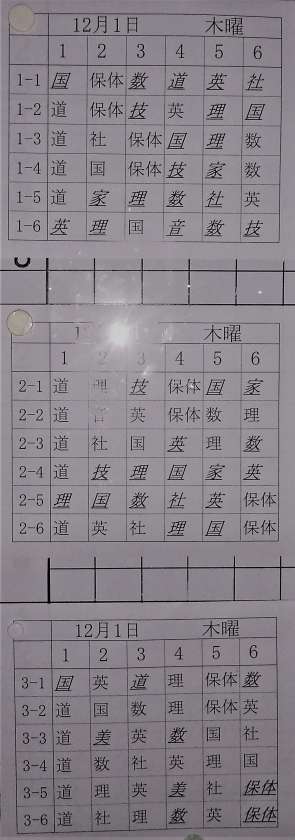 12月1日 木曜
1 2 3 4 5 6
1-1 国 保体 数 道 英 社
1-2 道 保体 技 英 理 国
1-3 道 社 保体 国 理 数
1-4 道 国 保体 技 家 数
1-5 道 家 理 数 社 英
1-6 英 理 国 音 数 技
木曜
1 2 3 4 5 6
2-1 道 理 技 保体 国 家
2-2 道 音 英 保体 数 理
2-3 道 社 国 英 理 数
2-4 道 技 理 国 家 英
2-5 理 国 数 社 英 保体
2-6 道 英 社 理 国 保体
12月1日 木曜
1 2 3 4 5 6
3-1 国 英 道 理 保体 数
3-2 道 国 数 理 保体 英
3-3 道 美 英 数 国 社
3-4 道 数 社 英 理 国
3-5 道 理 英 美 社 保体
3-6 道 社 理 数 英 保体